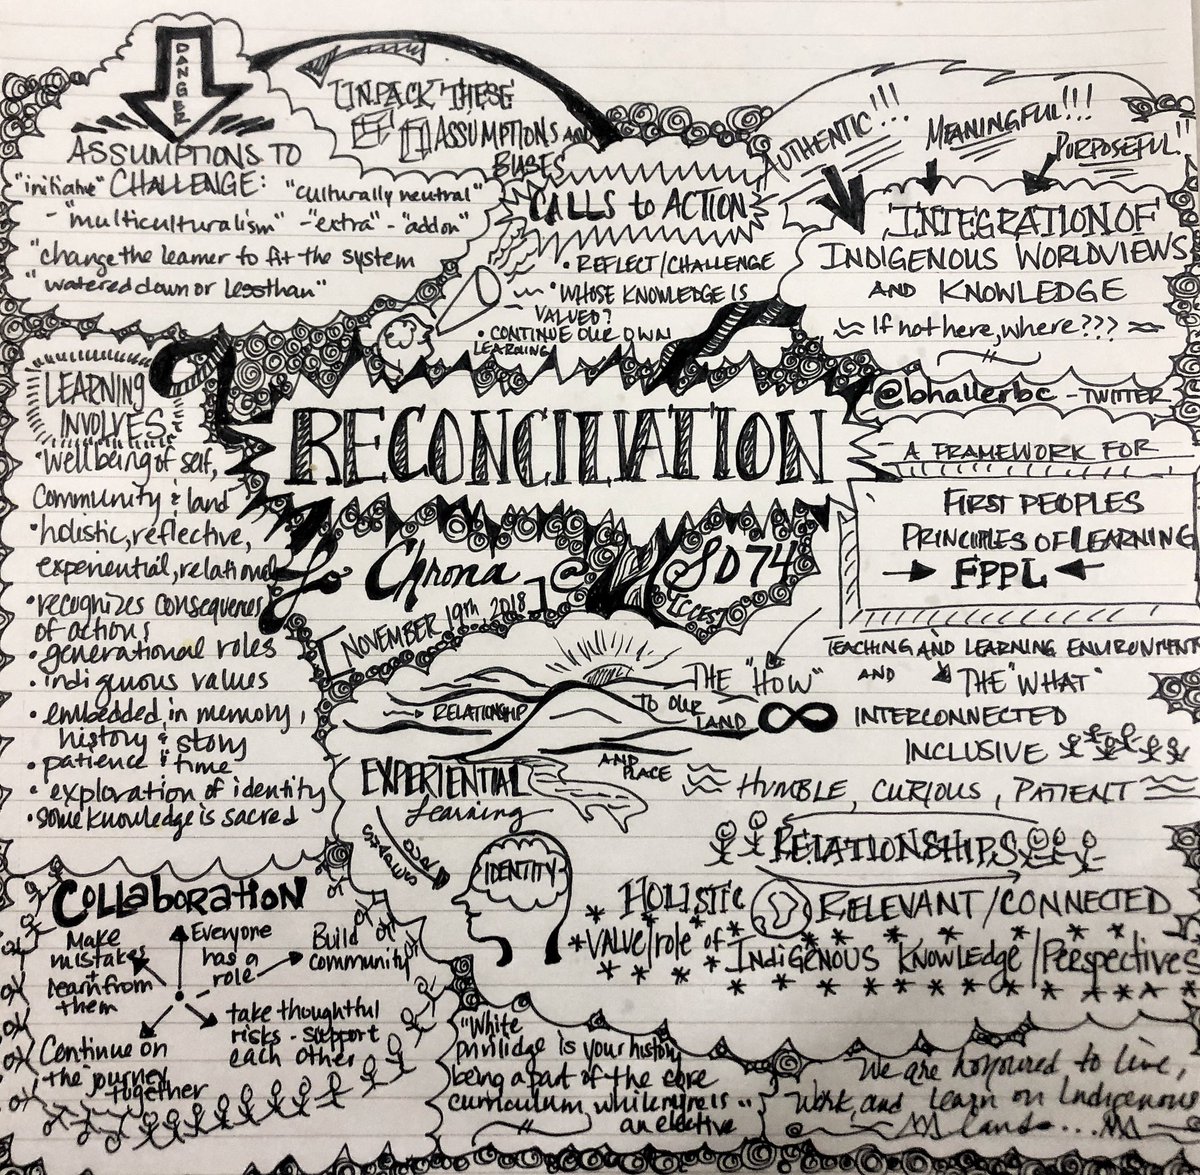 DANGER
ASSUMPTIONS TO
CHALLENGE:
"initiative"
"culturally neutral"
- "multiculturalism" - "extra" - "add on"
"change the learner to fit the system
"watered down or less than"
UNPACK THESE
ASSUMPTIONS AND
BIASES
CALLS to ACTION
• REFLECT/CHALLENGE
• WHOSE KNOWLEDGE IS
VALUED?
• CONTINUE OUR OWN
LEARNING
AUTHENTIC!!!
MEANINGFUL!!!
PURPOSEFUL!!
INTEGRATION OF
INDIGENOUS WORLDVIEWS
AND KNOWLEDGE
If not here, where???
@bhallerbc - TWITTER
LEARNING
INVOLVES:
• Well being of self,
Community & land
• holistic, reflective,
experiential, relational
• recognizes consequences
of actions
• generational roles
• indiguous values
• embedded in memory,
history & story
• patience & time
• exploration of identity
• some knowledge is sacred
RECONCILIATION
Jo Chrona @ SD74
ICCES
NOVEMBER 19th 2018
A FRAMEWORK FOR
FIRST PEOPLES
PRINCIPLES OF LEARNING
FPPL
TEACHING AND LEARNING ENVIRONMENT
THE "HOW" AND THE "WHAT"
RELATIONSHIP
TO OUR
LAND
AND
PLACE
INTERCONNECTED
INCLUSIVE
HUMBLE, CURIOUS, PATIENT
EXPERIENTIAL
Learning
RELATIONSHIPS
IDENTITY
HOLISTIC
RELEVANT/CONNECTED
VALUE/role of
INDIGENOUS KNOWLEDGE/Perspectives
COLLaboraTION
Make
mistakes
+
learn from
them
Everyone
has a
role
Build
community
take thoughtful
risks - support
each other
Continue on
the journey
together
"White
privilidge is your history
being a part of the core
curriculum while mine is
an elective"
We are honoured to live,
Work, and learn on Indigenous
lands...